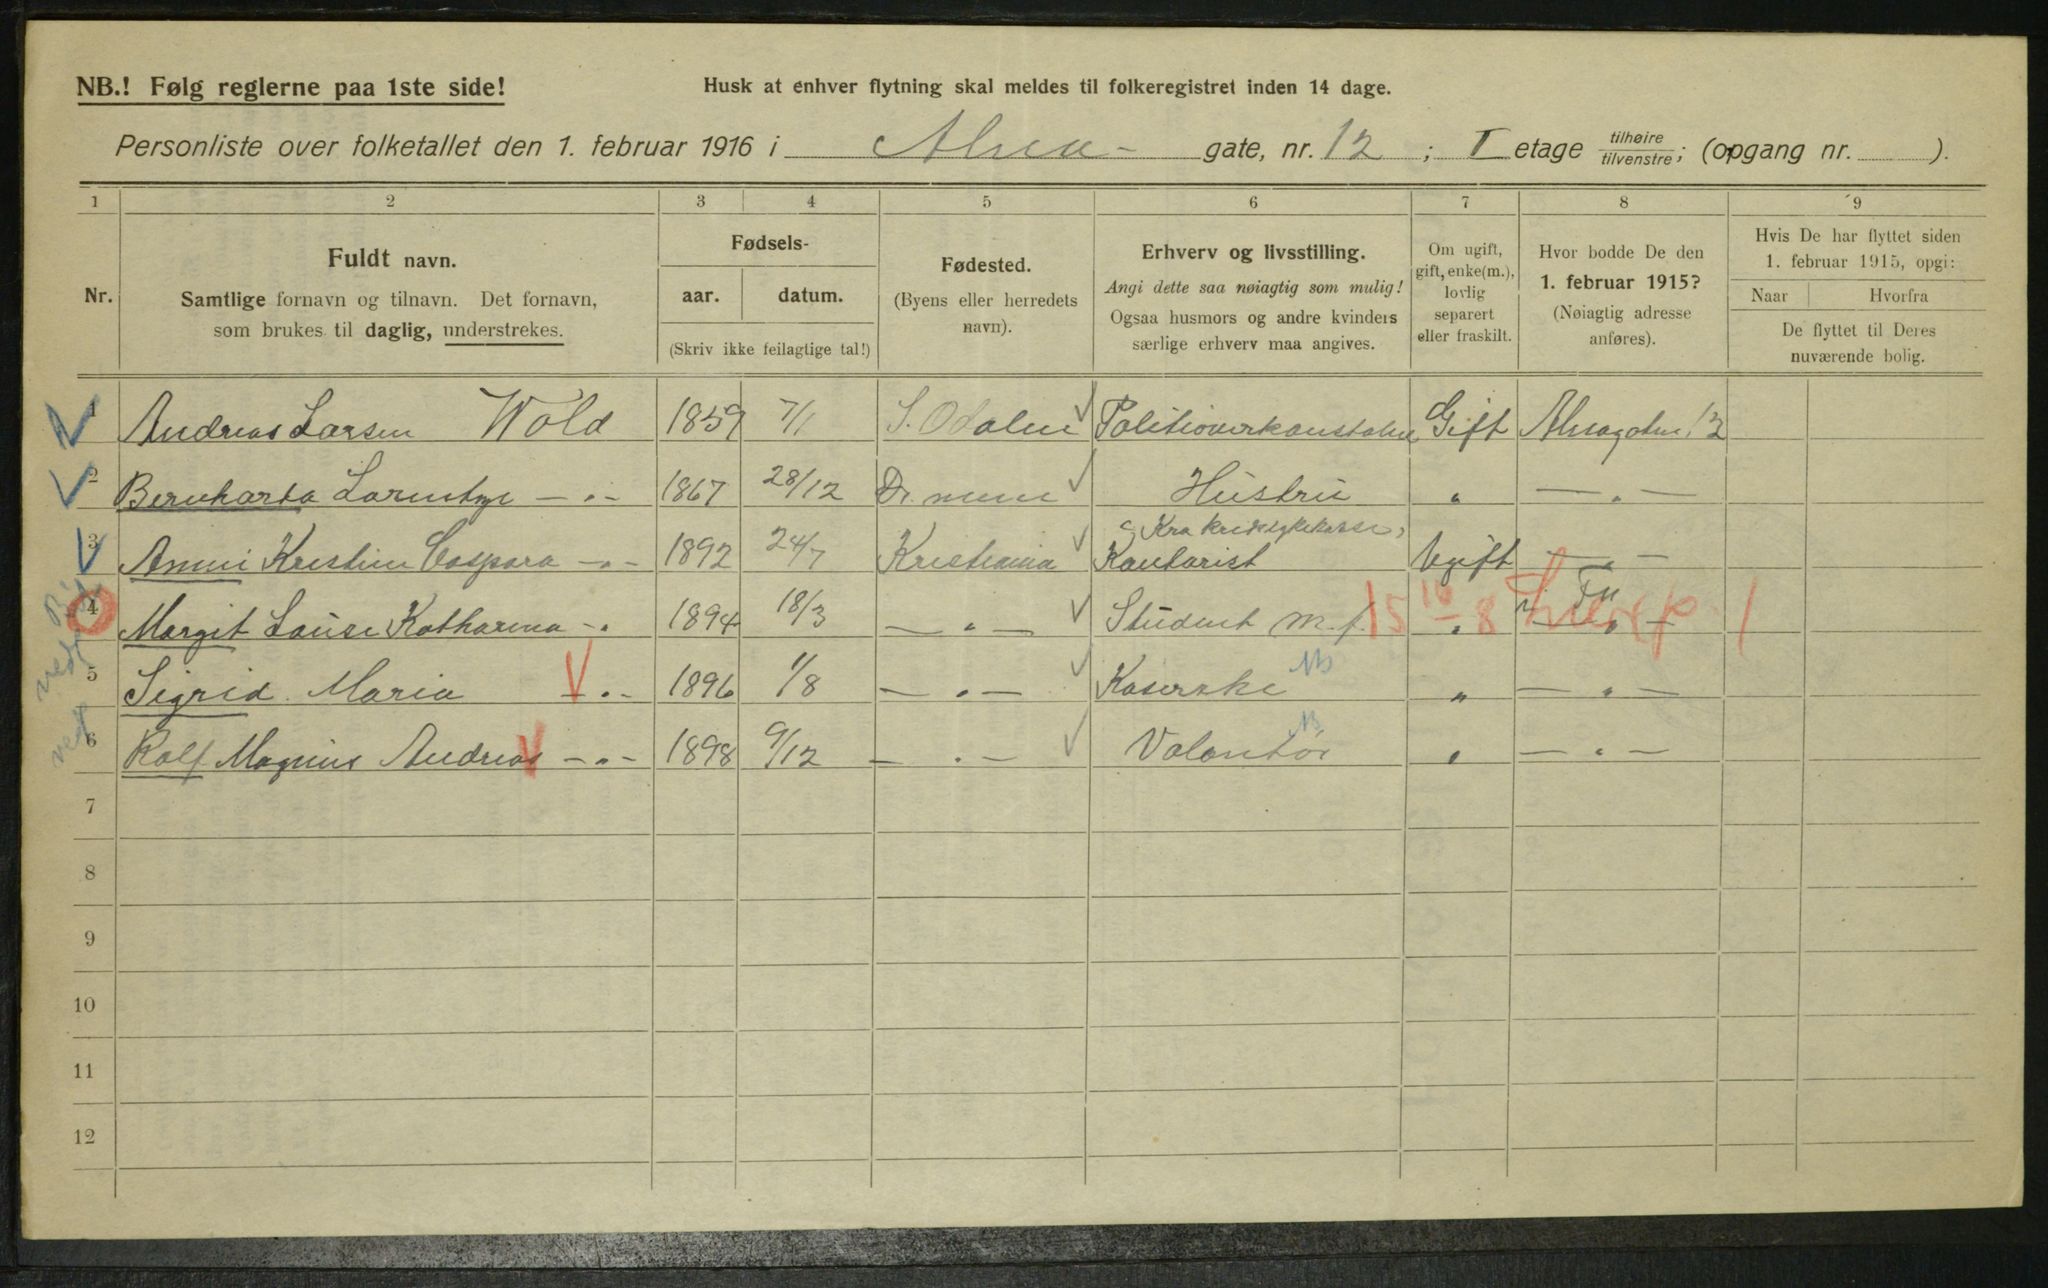 NB.! Følg reglerne paa 1ste side!
Husk at enhver flytning skal meldes til folkeregistret inden 14 dage.
Personliste over folketallet den 1. februar 1916 i gate, nr. 12 ; I etage tilhøire tilvenstre; (opgang nr. ).
1 2 3 4 5 6 7 8 9
Nr.
Fuldt navn.
Samtlige fornavn og tilnavn. Det fornavn,
som brukes til daglig, understrekes.
Fødsels-
aar. datum.
(Skriv ikke feilagtige tal!)
Fødested.
(Byens eller herredets
navn).
Erhverv og livsstilling.
Angi dette saa nøiagtig som mulig!
Ogsaa husmors og andre kvinders
særlige erhverv maa angives.
Om ugift,
gift, enke(m.),
lovlig
separert
eller fraskilt.
Hvor bodde De den
1. februar 1915?
(Nøiagtig adresse
anføres).
Hvis De har flyttet siden
1. februar 1915, opgi:
Naar Hvorfra
De flyttet til Deres
nuværende bolig.
1 Andreas Larsen Wold 1859 7/1 S. Odalen Politioverkonstabel Gift 12
2 Bernharda — " — 1867 28/12 Hustru " — " —
3 Anni Kristine Caspara — " — 1892 24/7 Kristiania Kontorist Ugift — " —
4 Margit Louise Katharina — " 1894 18/3 — " — Student 15 16/8 " — " —
5 Sigrid Maria — " — 1896 1/8 — " — Kaserske " — " —
6 Rolf Magnus Andreas — " — 1898 9/12 — " — Volontør " — " —
7
8
9
10
11
12